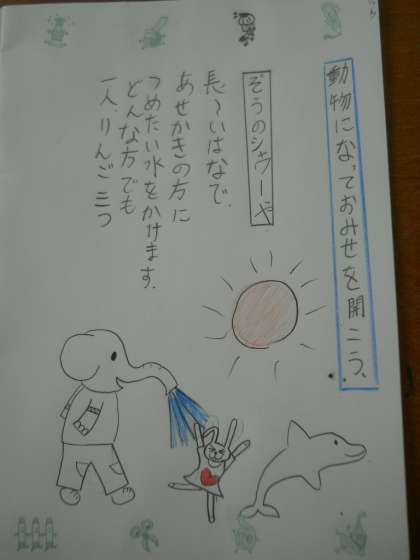 動物になっておみせを開こう、
ぞうのシャワーや
長〜いはなで、
あせかきの方に
つめたい水をかけます。
どんな方でも
一人、りんご三つ